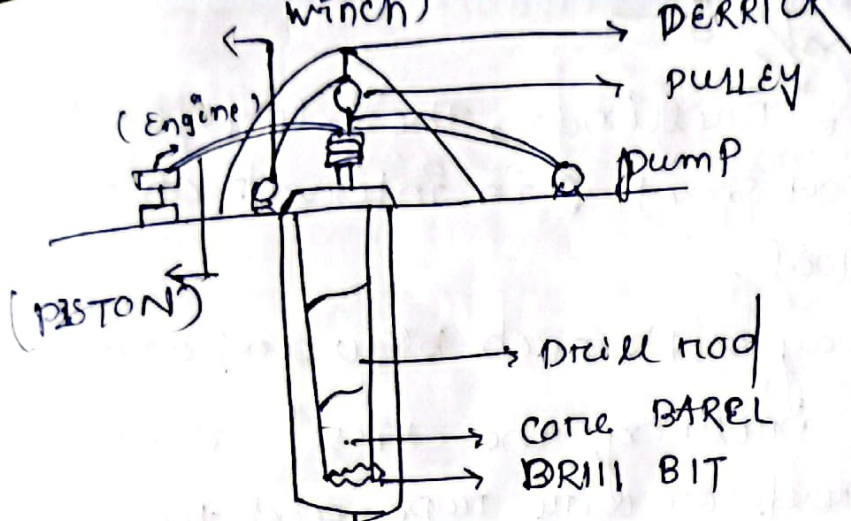 winch)
DERRICK
PULLEY
(Engine)
pump
(PISTON)
Drill rod
core BAREL
BRIll BIT